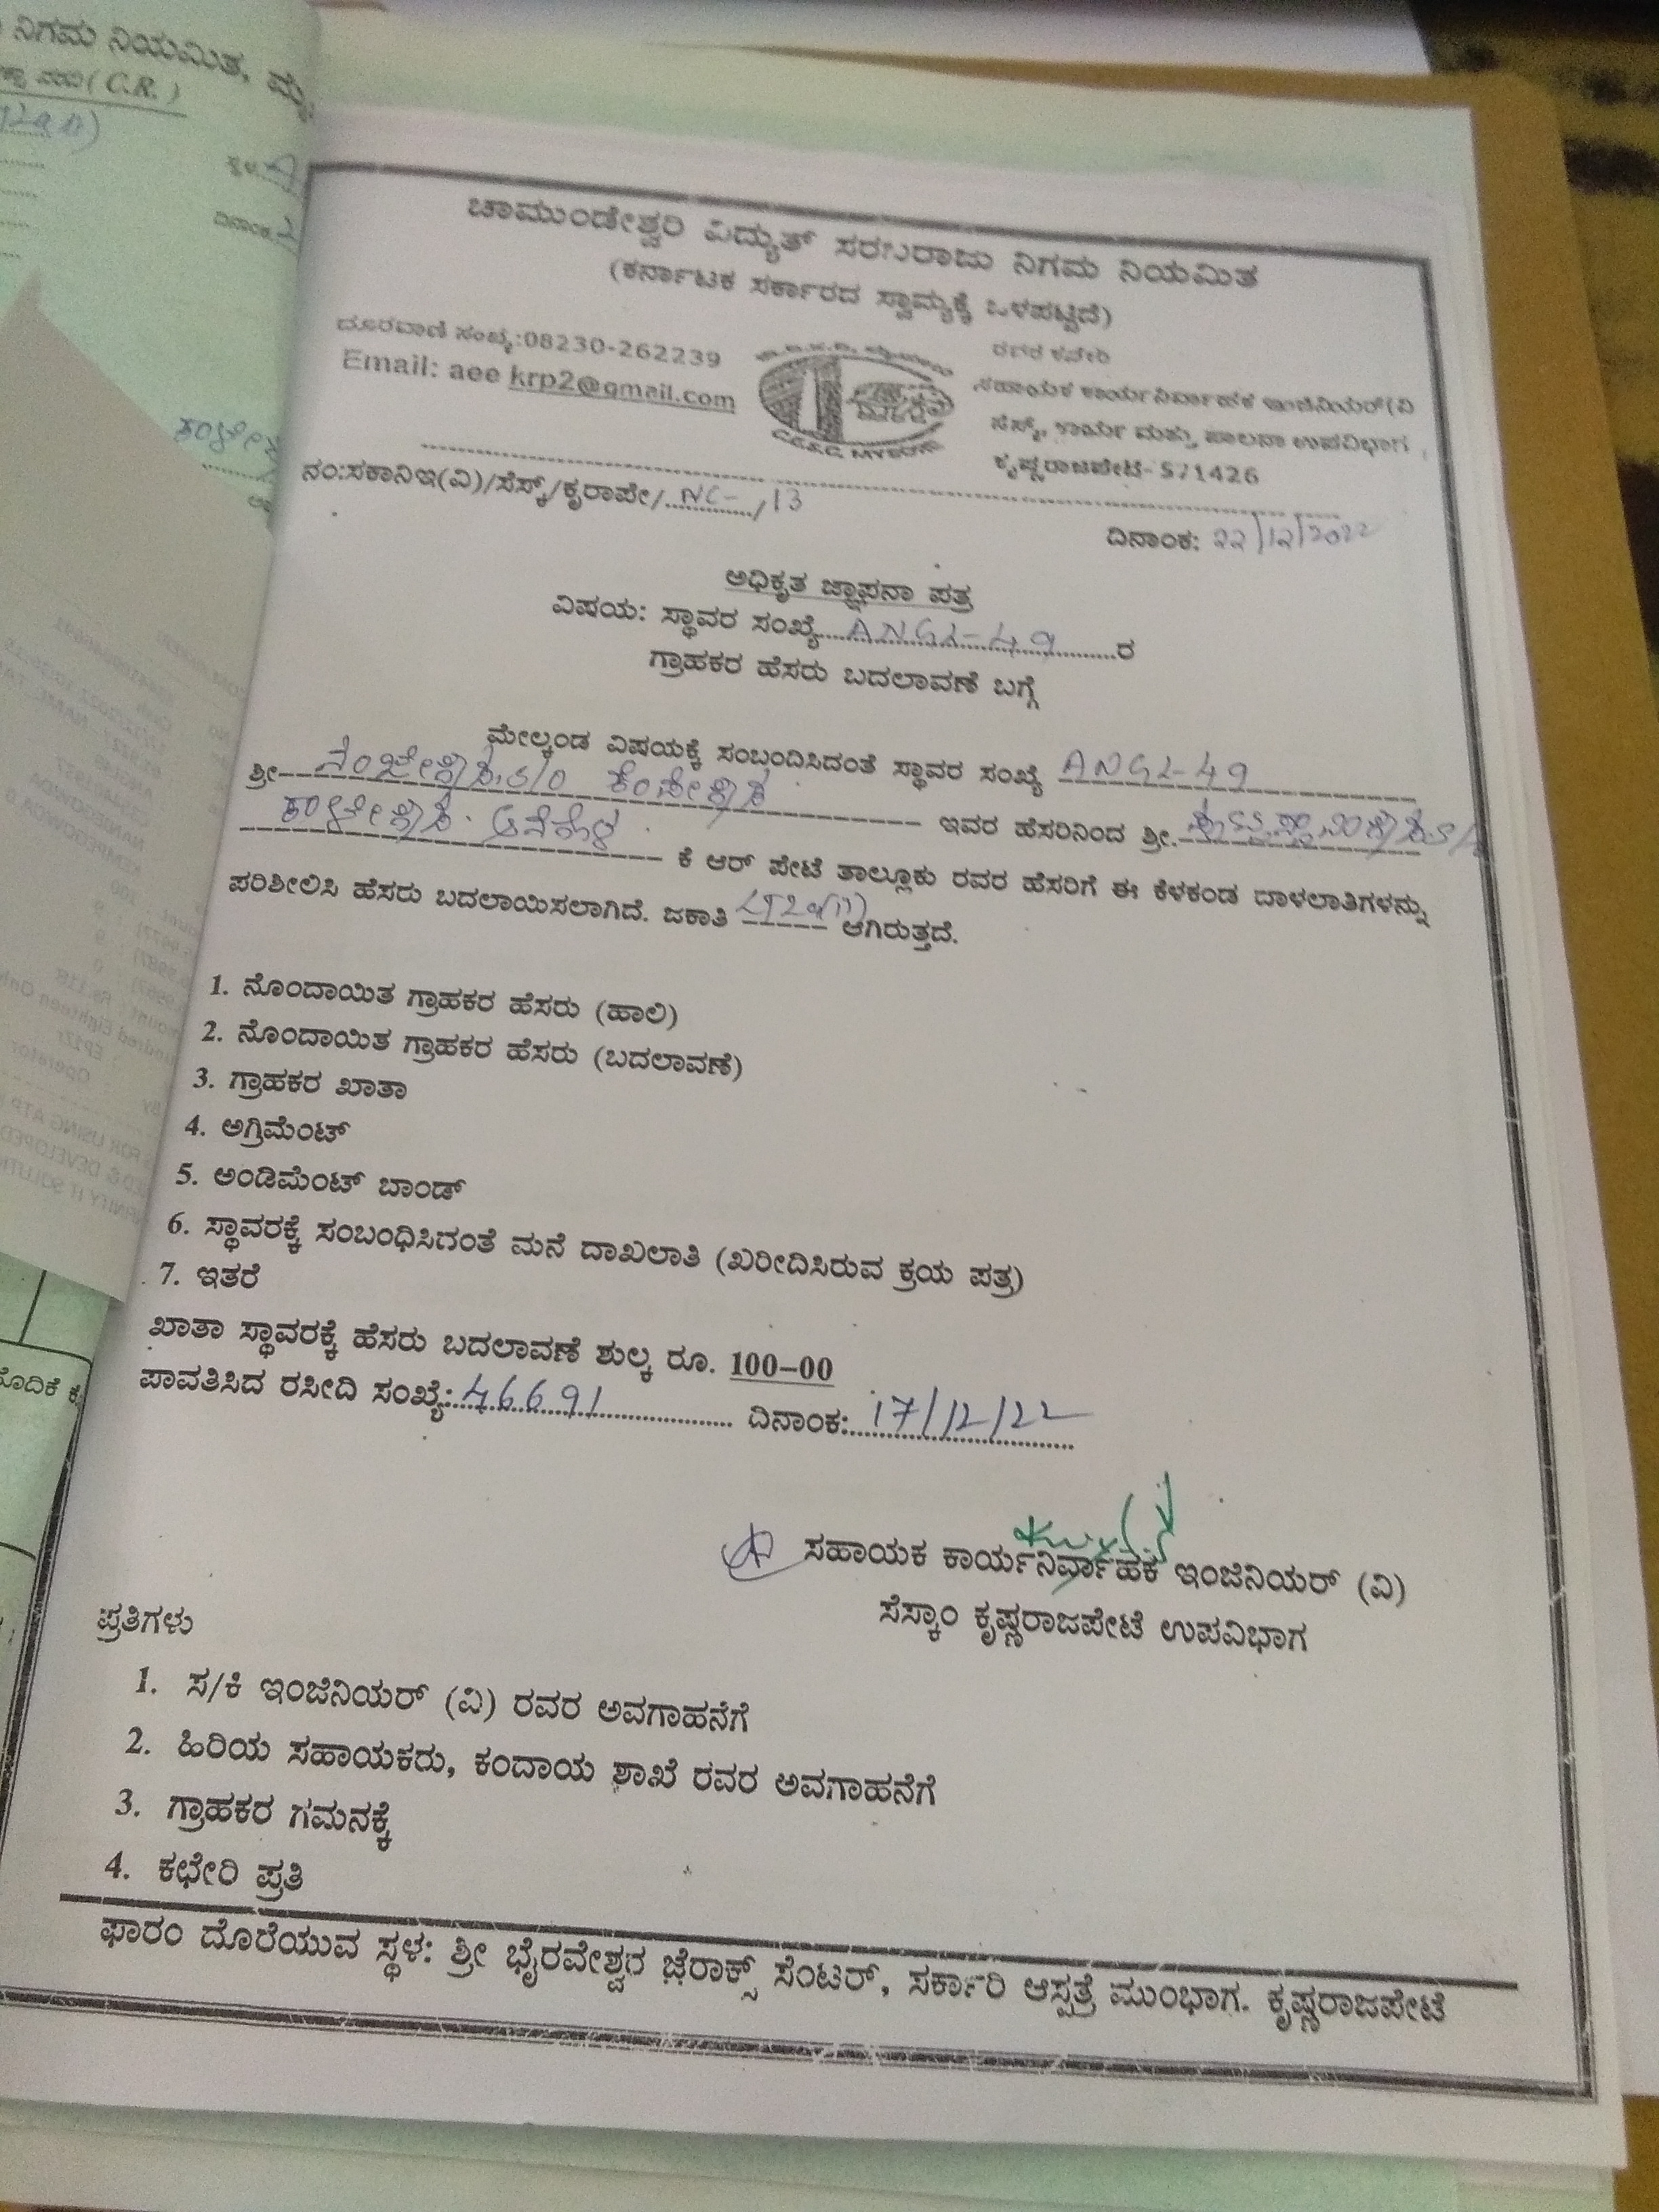 ನಿಗಮ ನಿಯಮಿತ, ಮೈ
( C.R. )
ದಿನಾಂಕ
ಚಾಮುಂಡೇಶ್ವರಿ ವಿದ್ಯುತ್ ಸರಬರಾಜು ನಿಗಮ ನಿಯಮಿತ
(ಕರ್ನಾಟಕ ಸರ್ಕಾರದ ಸ್ವಾಮ್ಯಕ್ಕೆ ಒಳಪಟ್ಟಿದೆ)
ದೂರವಾಣಿ ಸಂಖ್ಯೆ:08230-262239
Email: aee krp2@gmail.com
C.E.S.C, MYSORE
ರವರ ಕಚೇರಿ
ಸಹಾಯಕ ಕಾರ್ಯನಿರ್ವಾಹಕ ಇಂಜಿನಿಯರ್(ವಿ
ಸೆಸ್ಕ್, ಕಾರ್ಯ ಮತ್ತು ಪಾಲನಾ ಉಪವಿಭಾಗ
ಕೃಷ್ಣರಾಜಪೇಟೆ- 571426
ನಂ:ಸಕಾನಿಇ(ವಿ)/ಸೆಸ್ಕ್/ಕೃರಾಪೇ/ NC- /13
ದಿನಾಂಕ: 22/12/2022
ಅಧಿಕೃತ ಜ್ಞಾಪನಾ ಪತ್ರ
ವಿಷಯ: ಸ್ಥಾವರ ಸಂಖ್ಯೆ ANGL-49 ರ
ಗ್ರಾಹಕರ ಹೆಸರು ಬದಲಾವಣೆ ಬಗ್ಗೆ
ಮೇಲ್ಕಂಡ ವಿಷಯಕ್ಕೆ ಸಂಬಂದಿಸಿದಂತೆ ಸ್ಥಾವರ ಸಂಖ್ಯೆ ANGL-49
ಶ್ರೀ ನಂಜೇಗೌಡ S/O ಕೆಂಪೇಗೌಡ
ಇವರ ಹೆಸರಿನಿಂದ ಶ್ರೀ.
ಕಾಳೇಗೌಡ. ಆನೆಗೊಳ. ಕೆ ಆರ್ ಪೇಟೆ ತಾಲ್ಲೂಕು ರವರ ಹೆಸರಿಗೆ ಈ ಕೆಳಕಂಡ ದಾಳಲಾತಿಗಳನ್ನು
ಪರಿಶೀಲಿಸಿ ಹೆಸರು ಬದಲಾಯಿಸಲಾಗಿದೆ. ಜಕಾತಿ LT2a(ii) ಆಗಿರುತ್ತದೆ.
1. ನೊಂದಾಯಿತ ಗ್ರಾಹಕರ ಹೆಸರು (ಹಾಲಿ)
2. ನೊಂದಾಯಿತ ಗ್ರಾಹಕರ ಹೆಸರು (ಬದಲಾವಣೆ)
3. ಗ್ರಾಹಕರ ಖಾತಾ
4. ಅಗ್ರಿಮೆಂಟ್
5. ಅಂಡಿಮೆಂಟ್ ಬಾಂಡ್
6. ಸ್ಥಾವರಕ್ಕೆ ಸಂಬಂಧಿಸಿಗಂತೆ ಮನೆ ದಾಖಲಾತಿ (ಖರೀದಿಸಿರುವ ಕ್ರಯ ಪತ್ರ)
7. ಇತರೆ
ಖಾತಾ ಸ್ಥಾವರಕ್ಕೆ ಹೆಸರು ಬದಲಾವಣೆ ಶುಲ್ಕ ರೂ. 100–00
ಪಾವತಿಸಿದ ರಸೀದಿ ಸಂಖ್ಯೆ: 46691 ದಿನಾಂಕ: 17/12/22
ಸಹಾಯಕ ಕಾರ್ಯನಿರ್ವಾಹಕ ಇಂಜಿನಿಯರ್ (ವಿ)
ಸೆಸ್ಕಾಂ ಕೃಷ್ಣರಾಜಪೇಟೆ ಉಪವಿಭಾಗ
ಪ್ರತಿಗಳು
1. ಸ/ಕಿ ಇಂಜಿನಿಯರ್ (ವಿ) ರವರ ಅವಗಾಹನೆಗೆ
2. ಹಿರಿಯ ಸಹಾಯಕರು, ಕಂದಾಯ ಶಾಖೆ ರವರ ಅವಗಾಹನೆಗೆ
3. ಗ್ರಾಹಕರ ಗಮನಕ್ಕೆ
4. ಕಛೇರಿ ಪ್ರತಿ
ಫಾರಂ ದೊರೆಯುವ ಸ್ಥಳ: ಶ್ರೀ ಭೈರವೇಶ್ವರ ಜೆರಾಕ್ಸ್ ಸೆಂಟರ್, ಸರ್ಕಾರಿ ಆಸ್ಪತ್ರೆ ಮುಂಭಾಗ. ಕೃಷ್ಣರಾಜಪೇಟೆ